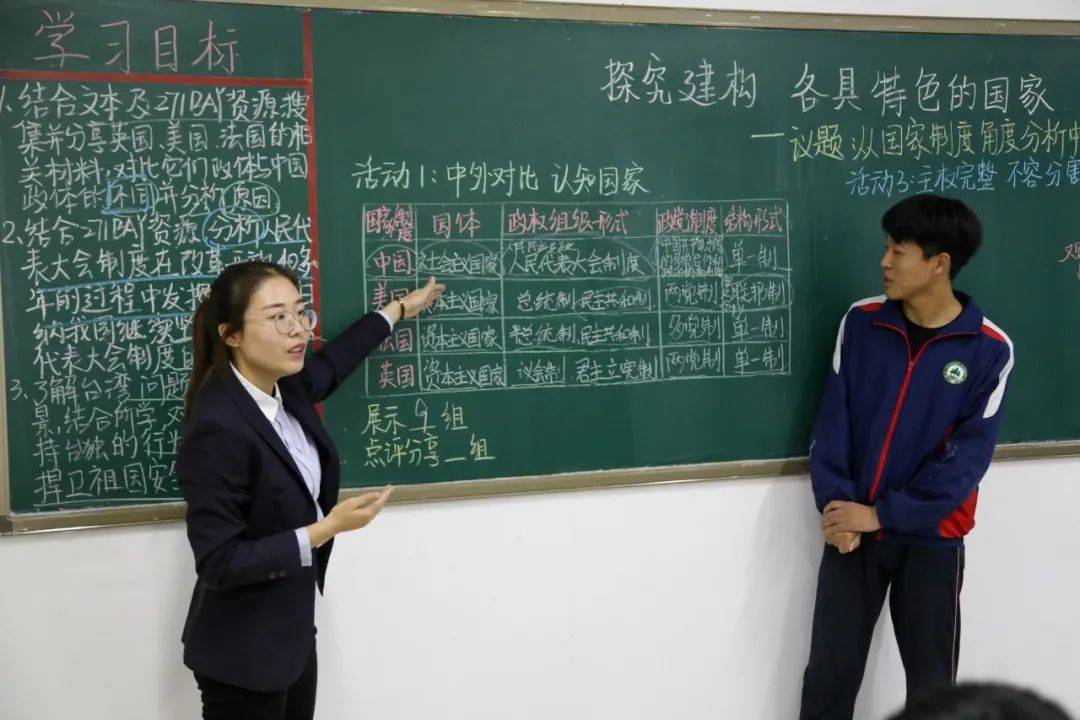 学习目标
1、结合文本及271BAY资源,搜
集并分享英国、美国、法国的相
关材料,对比它们政体与中国
政体的不同并分析原因
2、结合271BAY资源分析人民代
表大会制度在改革
年的过程中发
纳我国继续坚
代表大会制度
3、了解台湾问题
景,结合所学,对
持台独的行
捍卫祖国安
探究建构 各具特色的国家
一议题:从国家制度角度分析中
活动3:主权完整 不容分割
活动1:中外对比 认知国家
国家 国体 政权组织形式 政党制度 结构形式
中国 社会主义国家 人民代表大会制度 单一制
美国 资本主义国家 总统制 民主共和制 两党制 联邦制
法国 资本主义国家 总统制 民主共和制 多党制 单一制
英国 资本主义国家 议会制 君主立宪制 两党制 单一制
展示 组
点评分享 一组